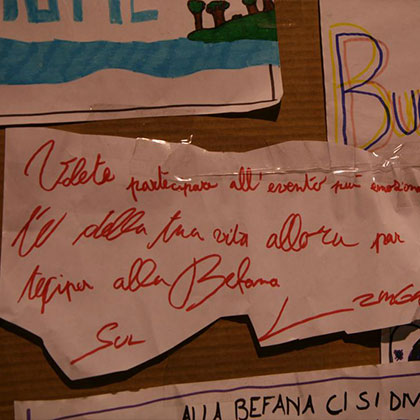 Bu
Volete partecipare all'evento più emozion
te della tua vita allora par
tecipa alla Befana
Sul
ALLA BEFANA CI SI DIV